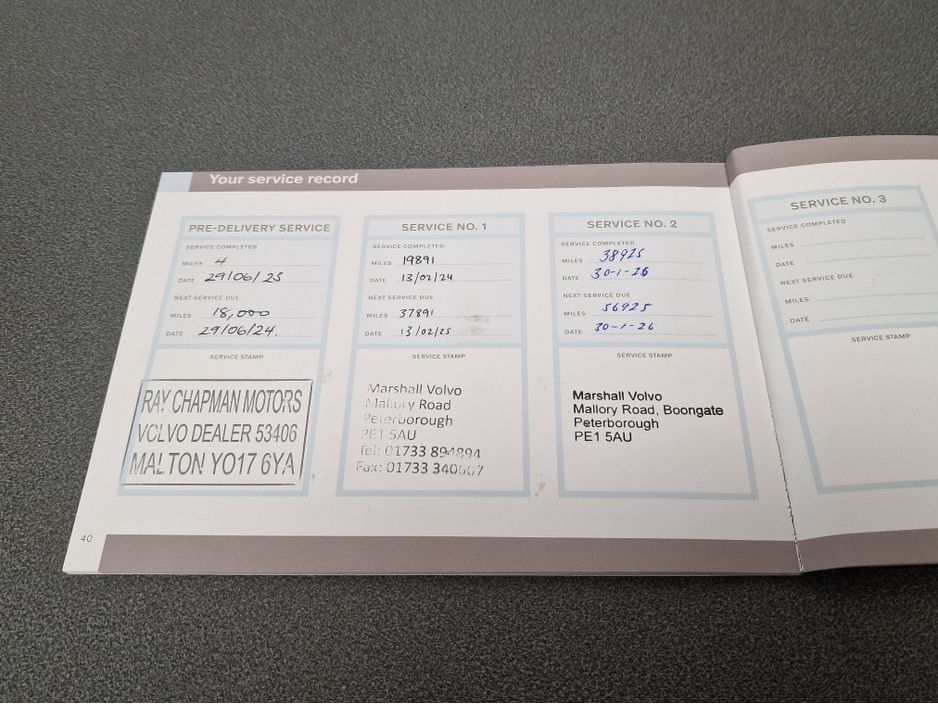 Your service record
PRE-DELIVERY SERVICE
SERVICE COMPLETED
MILES 4
DATE 29/06/23
NEXT SERVICE DUE
MILES 18,000
DATE 29/06/24.
SERVICE STAMP
RAY CHAPMAN MOTORS
VOLVO DEALER 53406
MALTON YO17 6YA
SERVICE NO. 1
SERVICE COMPLETED
MILES 19891
DATE 13/02/24
NEXT SERVICE DUE
MILES 37891
DATE 13/02/25
SERVICE STAMP
Marshall Volvo
Mallory Road
Peterborough
PE1 5AU
Tel: 01733 894894
Fax: 01733 340607
SERVICE NO. 2
SERVICE COMPLETED
MILES 38925
DATE 30-1-26
NEXT SERVICE DUE
MILES 56925
DATE 30-1-26
SERVICE STAMP
Marshall Volvo
Mallory Road, Boongate
Peterborough
PE1 5AU
SERVICE NO. 3
SERVICE COMPLETED
MILES
DATE
NEXT SERVICE DUE
MILES
DATE
SERVICE STAMP
40